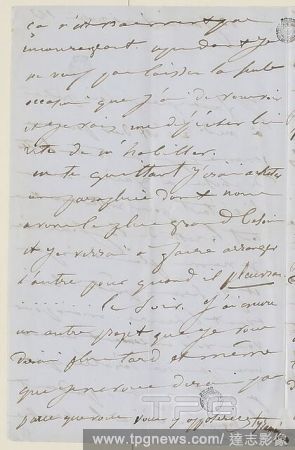 ça n'est vraiment pas
encourageant. cependant je
ne veux pas laisser la seule
occasion que j'ai de
et je vais me dépêcher bien
vite de m'habiller.
en te quittant j'irai acheter
un parapluie dont nous
avons le plus grand besoin
et je verrai à faire arranger
l'autre pour quand il pleuvra.
..... le soir. J'ai encore
un autre projet que je vous
dirai plus tard et même
que je ne vous dirai pas
parce que vous vous y
TPG
www.tpgnews.com / 達志影像